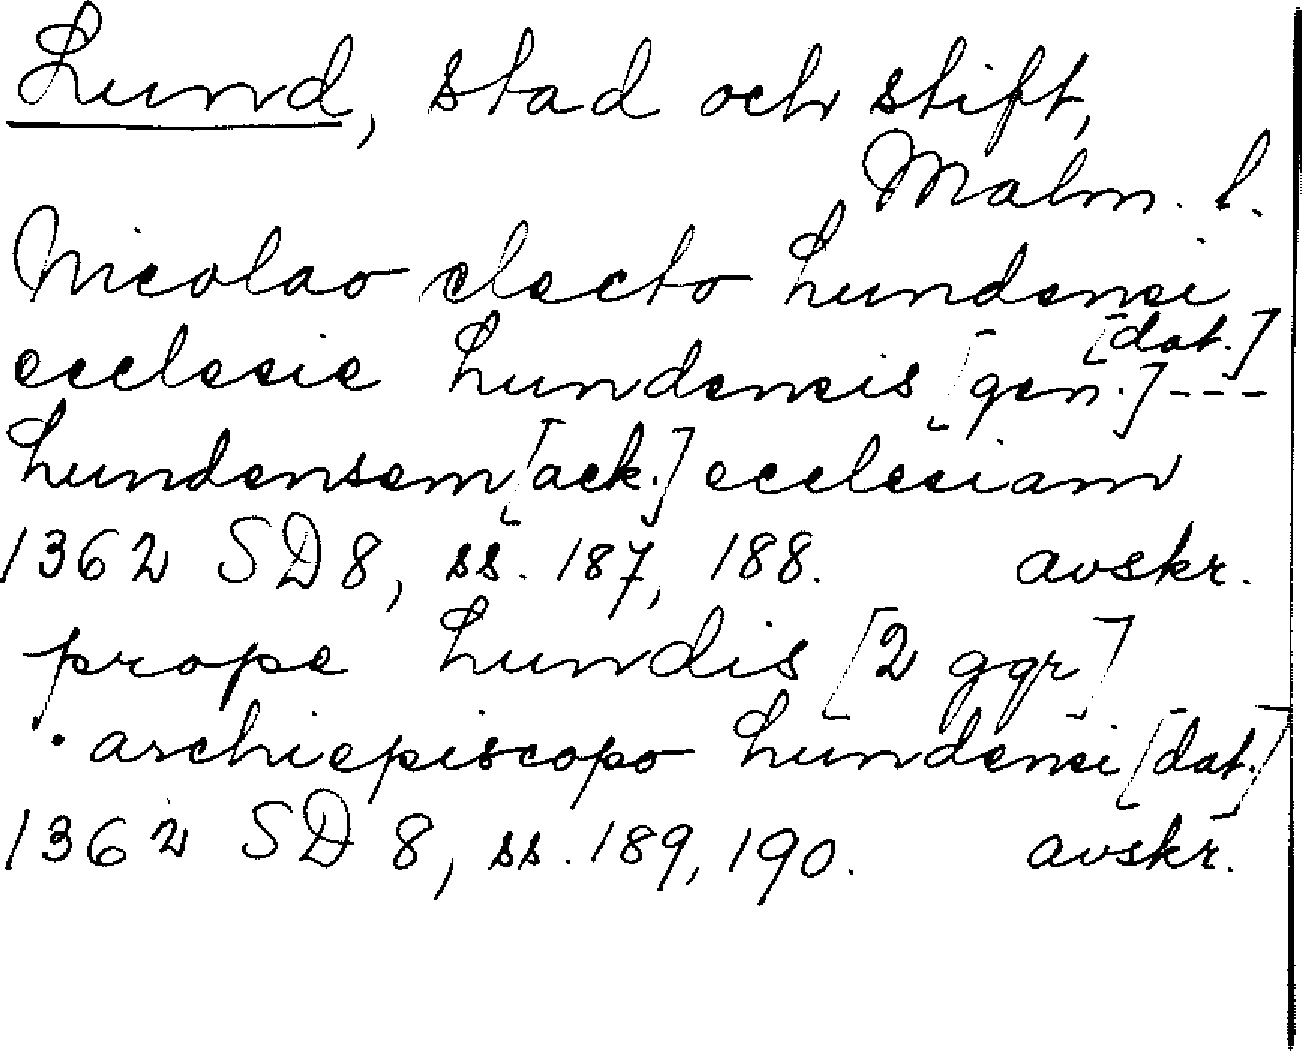 Lund, stad och stift,
Malm. l.
Nicolao electo Lundensi
[dat.]
ecclesie Lundensis [gen.] ---
Lundensem [ack.] ecclesiam
1362 SD 8, ss. 187, 188. avskr.
prope Lundis [2 ggr]
· archiepiscopo Lundensi [dat.]
1362 SD 8, ss. 189, 190. avskr.